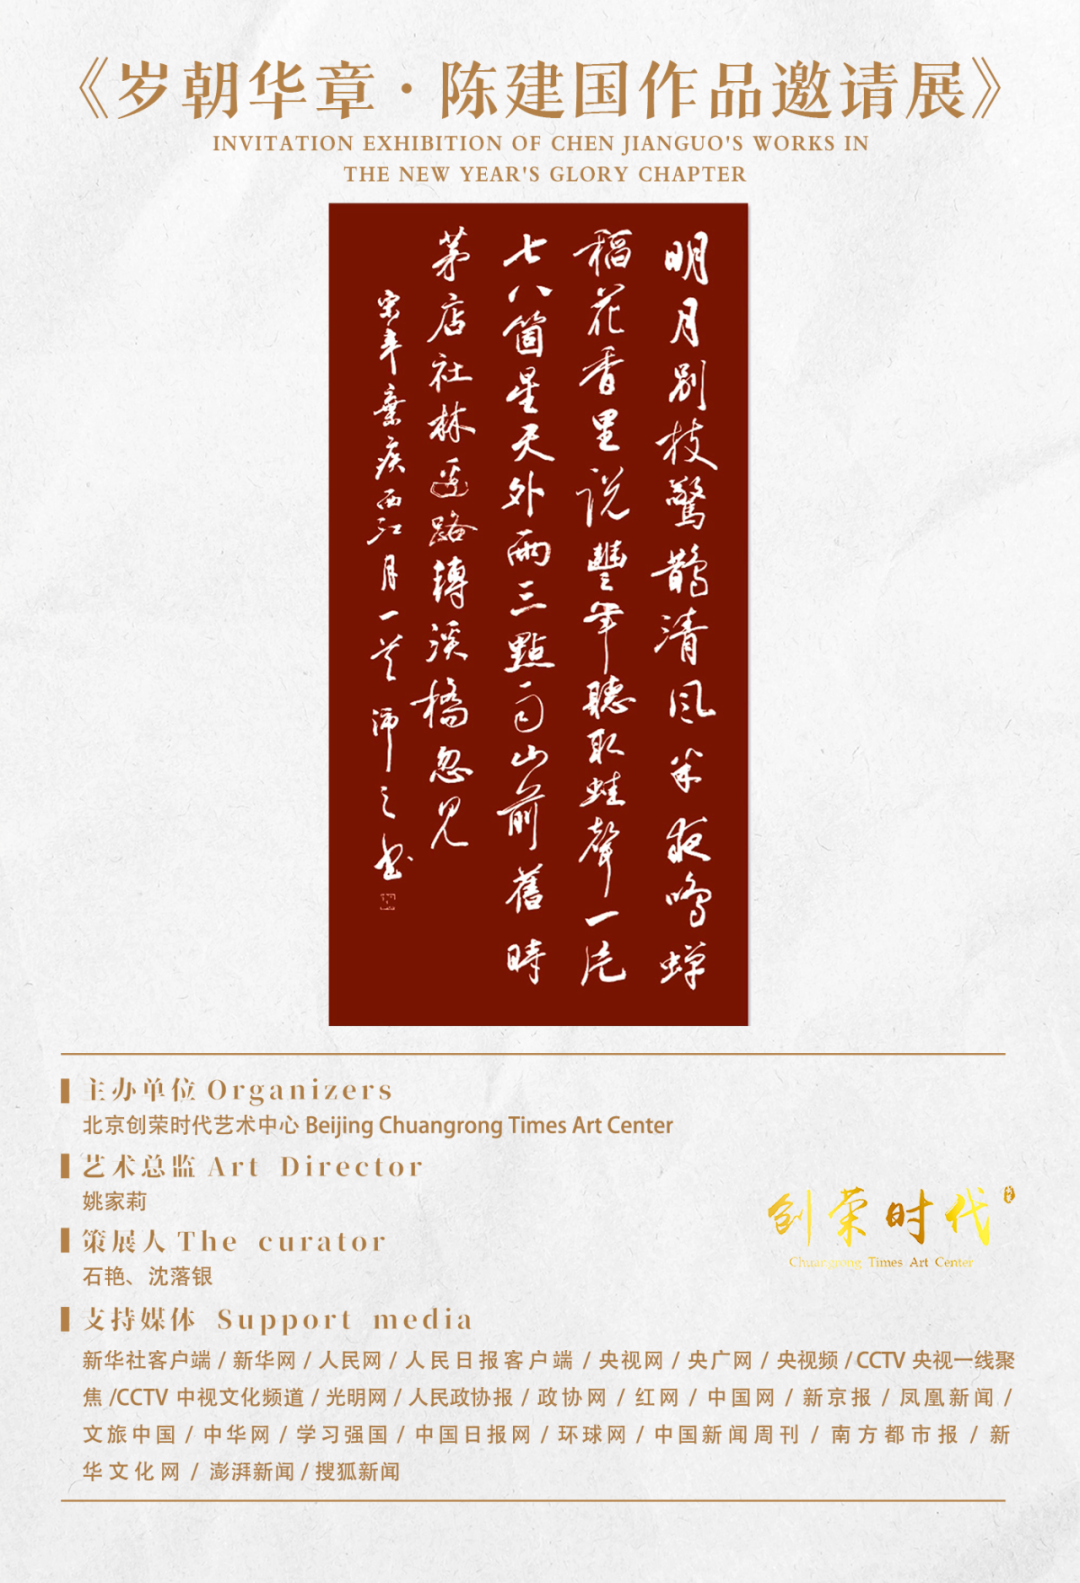 《岁朝华章·陈建国作品邀请展》
INVITATION EXHIBITION OF CHEN JIANGUO'S WORKS IN
THE NEW YEAR'S GLORY CHAPTER
明月別枝驚鵲清风半夜鸣蝉
稻花香里说豐年聽取蛙聲一片
七八箇星天外兩三點雨山前舊時
茅店社林边路轉溪橋忽見
宋辛棄疾西江月一首 沛之书
主办单位 Organizers
北京创荣时代艺术中心 Beijing Chuangrong Times Art Center
艺术总监 Art Director
姚家莉
策展人 The curator
石艳、沈落银
创荣时代
Chuangrong Times Art Center
支持媒体 Support media
新华社客户端 / 新华网 / 人民网 / 人民日报客户端 / 央视网 / 央广网 / 央视频 / CCTV 央视一线聚
焦 /CCTV 中视文化频道 / 光明网 / 人民政协报 / 政协网 / 红网 / 中国网 / 新京报 / 凤凰新闻 /
文旅中国 / 中华网 / 学习强国 / 中国日报网 / 环球网 / 中国新闻周刊 / 南方都市报 / 新
华文化网 / 澎湃新闻 / 搜狐新闻